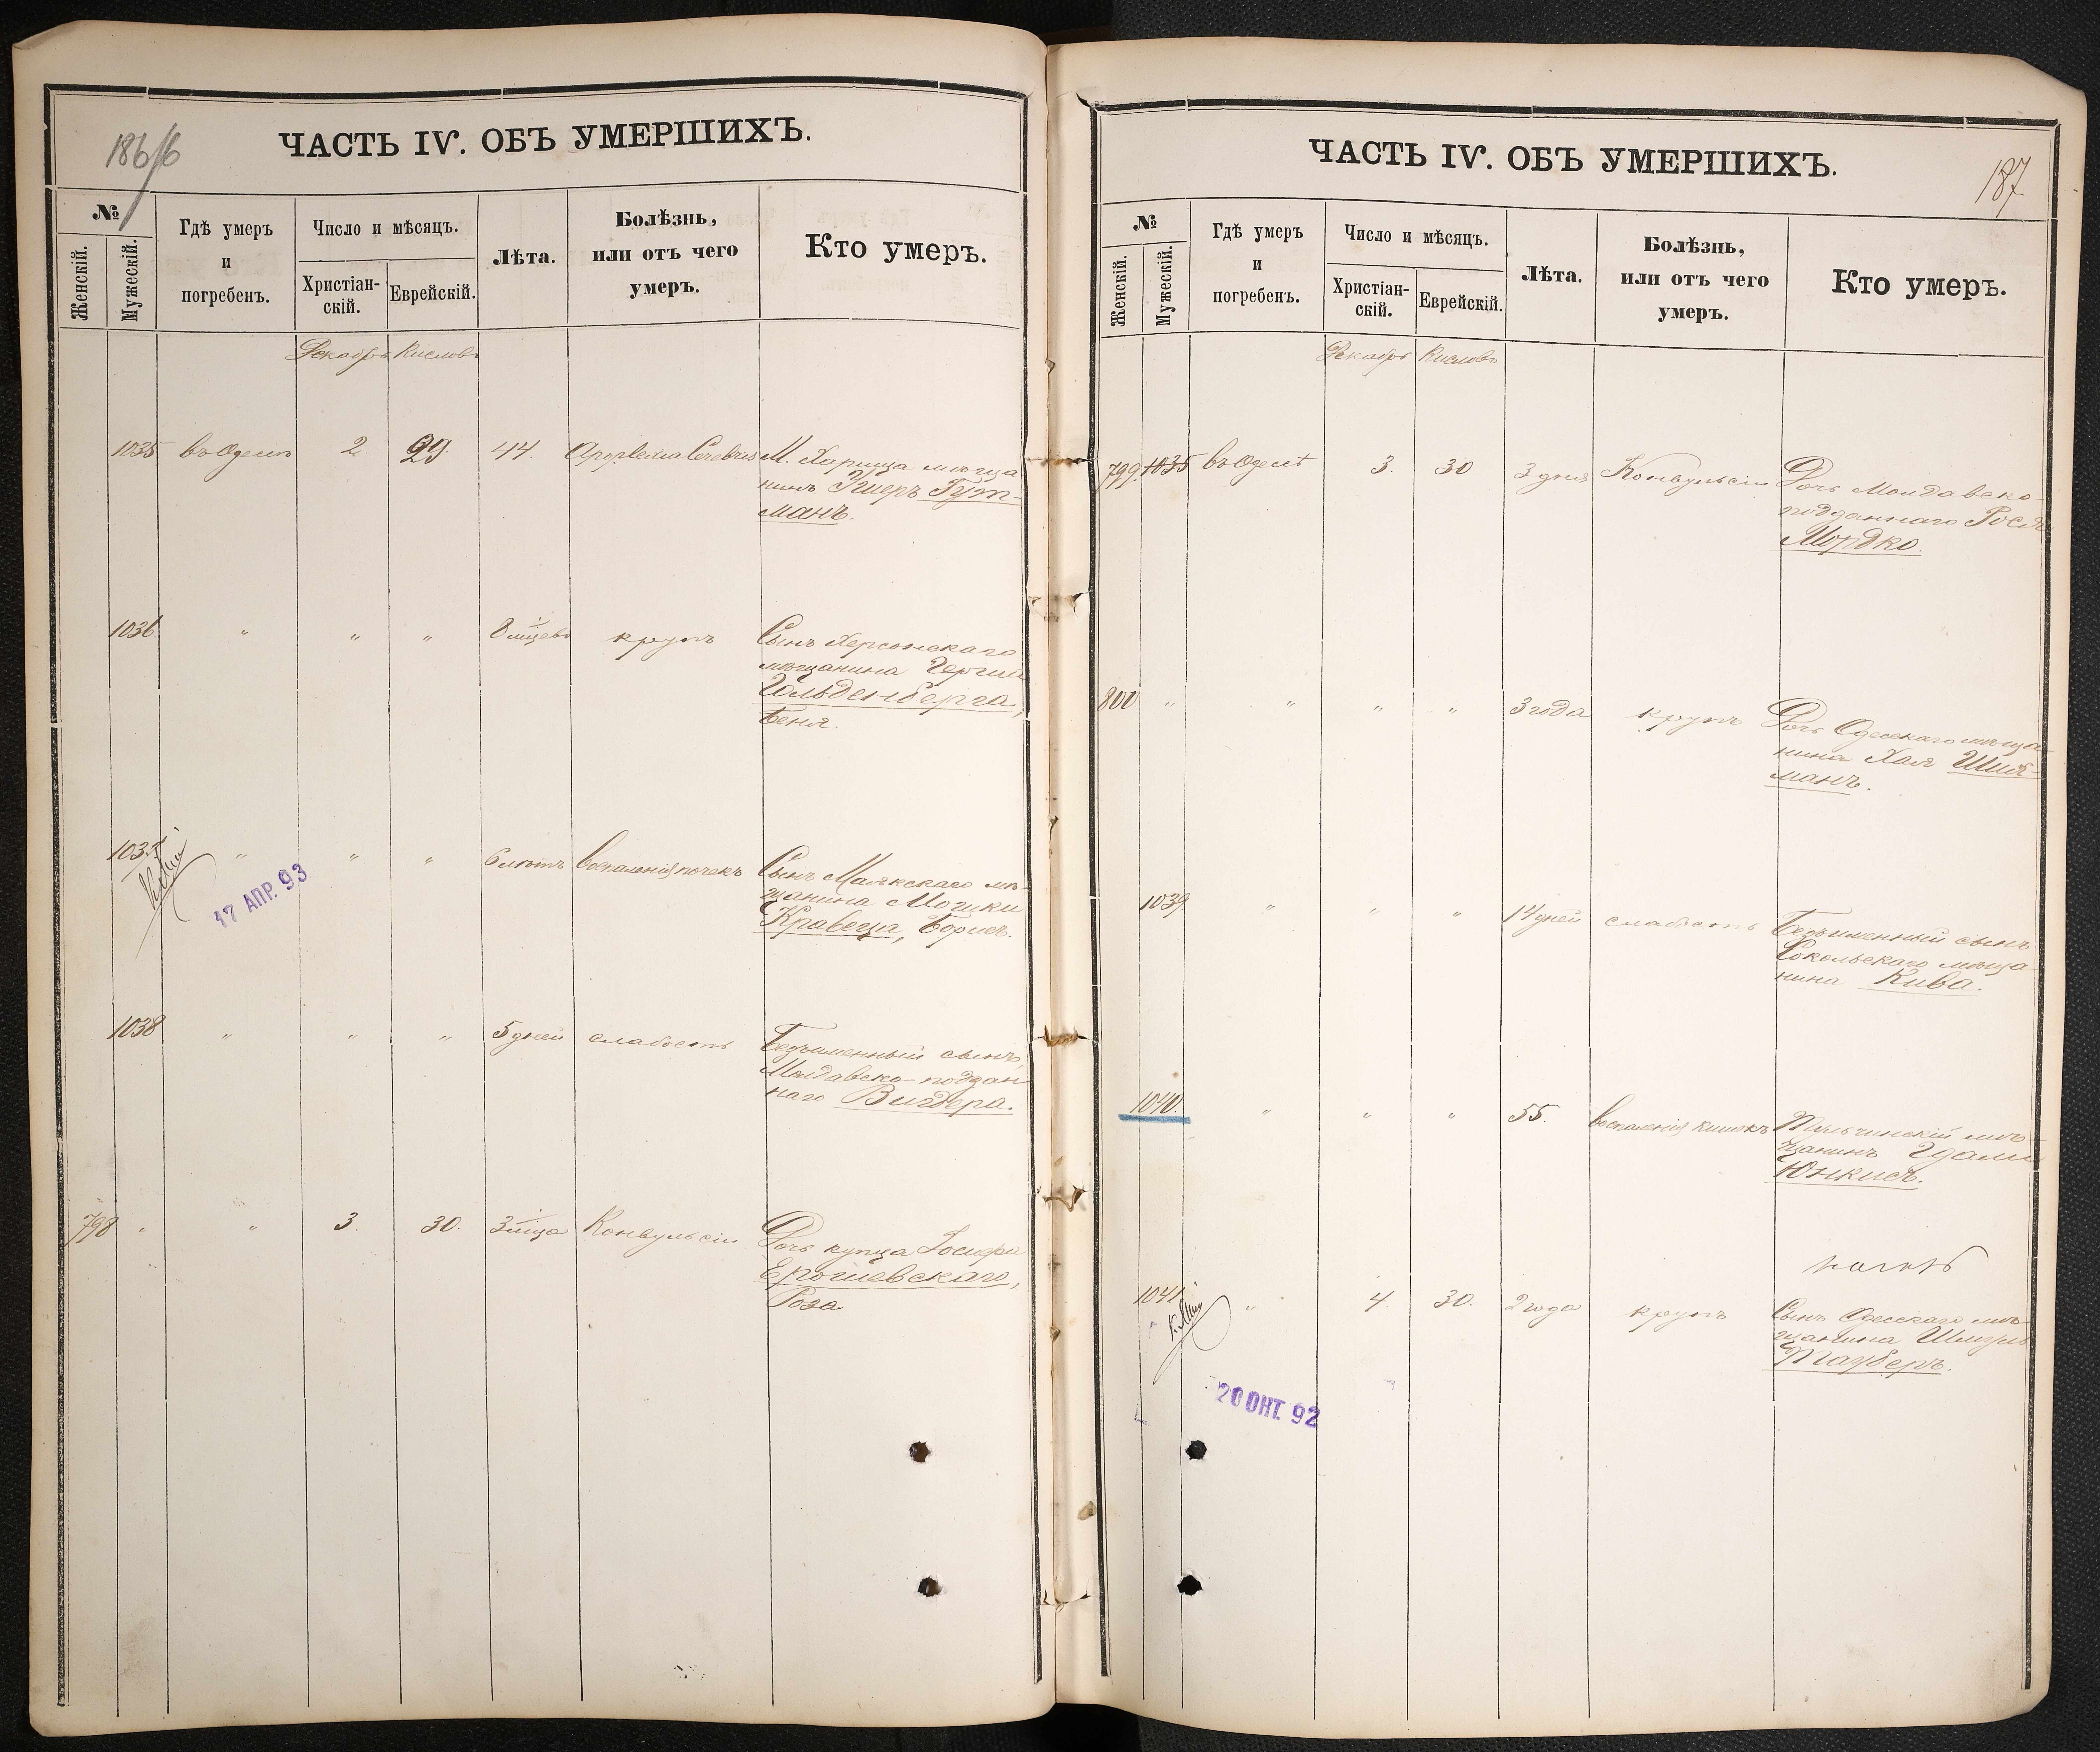 186
ЧАСТЬ IV. ОБЪ УМЕРШИХЪ.
№
Женскій.
Мужескій.
Гдѣ умеръ
и
погребенъ.
Число и мѣсяцъ.
Христіан-
скій.
Еврейскій.
Лѣта.
Болѣзнь,
или отъ чего
умеръ.
Кто умеръ.
Декабрь Кислевъ
1035 въ Одессѣ 2. 29. 44. Apoplexia М.
нинъ Гут-
манъ.
1036 " " " 8 круп Сынъ Херсонскаго
мѣщанина
Гольденберга,
Беня.
1037 " " " 6 лѣтъ воспаленія почекъ Сынъ Маякскаго мѣ-
щанина Мошки
Кравеца, Борисъ.
17 АПР. 93
1038 " " " 5 дней слабость Безъименный сынъ
Молдавско-поддан
наго Вигдера.
798 " " 3. 30. 3 мѣсца Конвульсіи Дочь купца Іосифа
Ерошевскаго,
Роза.
ЧАСТЬ IV. ОБЪ УМЕРШИХЪ.
187.
№
Женскій.
Мужескій.
Гдѣ умеръ
и
погребенъ.
Число и мѣсяцъ.
Христіан-
скій.
Еврейскій.
Лѣта.
Болѣзнь,
или отъ чего
умеръ.
Кто умеръ.
Декабрь Кислевъ
799. 1035 въ Одессѣ 3. 30. 3 дня Конвульсіи Дочь Молдавско-
подданнаго
Мордко.
800. " " " " 3 года крупъ Дочь Одесскаго мѣща
нина Хая
манъ.
1039 " " " 14 дней слабость Безъименный сынъ
Сокольскаго мѣща
нина Кива.
1040. " " " 55. воспаленія кишекъ Тульчинскій мѣ-
щанинъ
Юнкисъ.
1041 " 4. 30. 2 года крупъ Сынъ Одесскаго мѣ-
щанина
Тауберъ.
20 ОКТ. 92